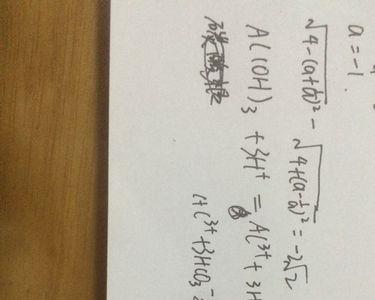 a=-1.
√4-(a+1/a)² - √4+(a-1/a)² = -2√2
Al(OH)₃ + 3H⁺ = Al³⁺ + 3H
碳 Al³⁺+3HCO₃⁻=